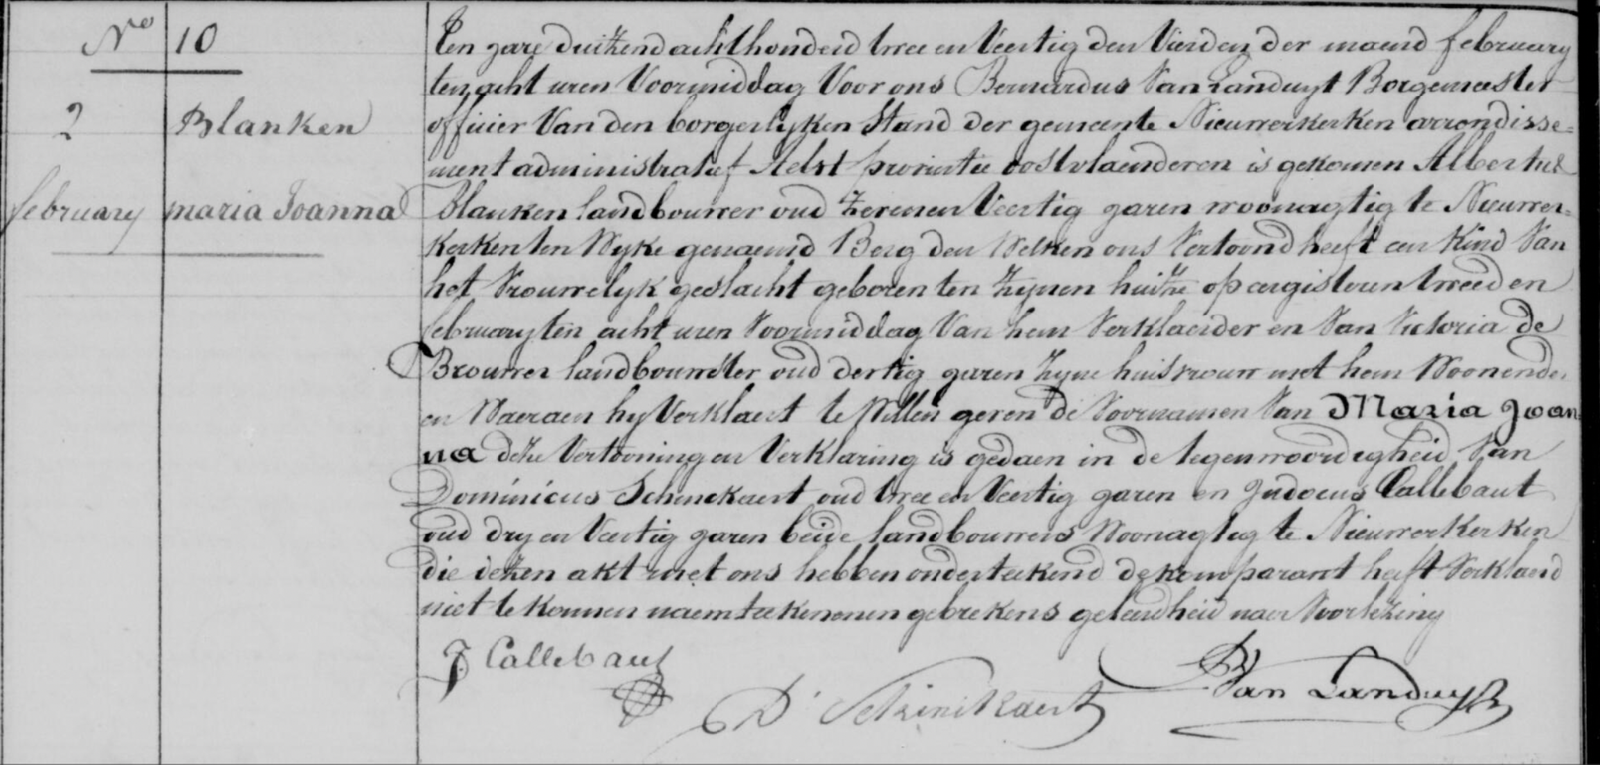 No 10
2 Blanken
february maria Joanna
Ten jare duizend achthonderd twee en Veertig den Vierden der maend february
ten acht uren Voormiddag Voor ons Bernardus Van Landuyt Borgemeester
officier Van den borgerlyken Stand der gemeente Nieuwerkerken arrondisse=
ment administratief Aelst provintie oostvlaenderen is gekomen Albertus
Blanken landbouwer oud zevenen Veertig jaren woonagtig te Nieuwer=
kerken ten Wyke genaemd Berg den Welken ons Vertoond heeft een Kind Van
het Vrouwelyk geslacht geboren ten zynen huize op eergisteren tweeden
february ten acht uren Voormiddag Van hem Verklaerder en Van Victoria de
Brouwer landbouwster oud dertig jaren zyne huisvrouw met hem Woonende
en Waeraen hy Verklaert te Willen geven de Voornamen Van Maria Joan=
na deze Vertooning en Verklaring is gedaen in de tegenwoordigheid Van
Dominicus Schinckaert oud twee en Veertig jaren en Judocus Callebaut
oud dry en Veertig jaren beide landbouwers Woonagtig te Nieuwerkerken
die dezen akt met ons hebben onderteekend de komparant heeft Verklaerd
niet te konnen naemteekenenen gebrekens geleerdheid naer Voorlezing
J Callebaut
D' Schinckaert
B Van Landuyt